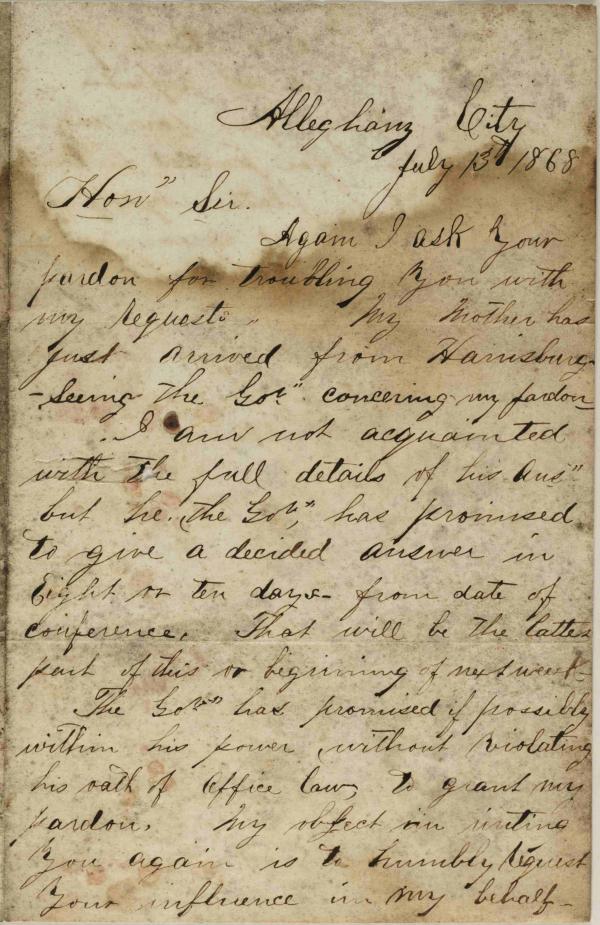 Alleghany City
July 13th 1868
Hon" Sir.
Again I ask Your
pardon for troubling You with
my requests. My Mother has
just arrived from Harrisburg-
-Seeing the Gov" concering my pardon-
I am not acquainted
with the full details of his Ans"
but he. the Gov", has promised
to give a decided answer in
Eight or ten days- from date of
conference. That will be the latter
part of this or beginning of next week-
The Gov" has promised if possibly
within his power, without violating
his oath of Office law, to grant my
pardon. My object in writing
You again is to humbly request
Your influence in my behalf-